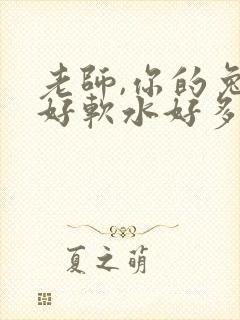 老師,你的兔
好軟水好多
夏之萌